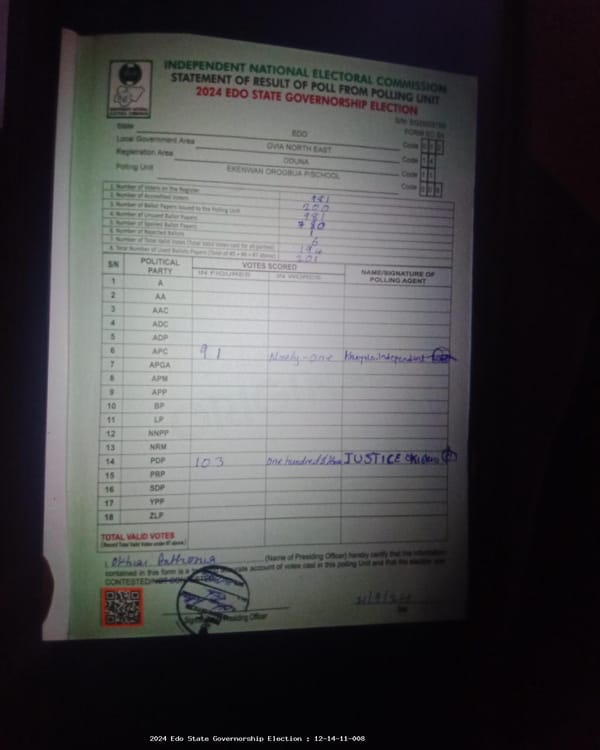 INDEPENDENT NATIONAL ELECTORAL COMMISSION
STATEMENT OF RESULT OF POLL FROM POLLING UNIT
2024 EDO STATE GOVERNORSHIP ELECTION
State EDO Code
Local Government Area OVIA NORTH EAST Code
Registration Area ODUNA Code
Polling Unit EKENWAN OROGBUA P/SCHOOL Code
1. Number of Voters on the Register 981
2. Number of Accredited Voters 200
3. Number of Ballot Papers Issued to the Polling Unit 981
4. Number of Unused Ballot Papers 780
5. Number of Spoiled Ballot Papers 1
6. Number of Rejected Ballots 6
7. Number of Total Valid Votes (Total Valid Votes cast for all parties) 194
8. Total Number of Used Ballot Papers (Total of #5 + #6 + #7 above) 201
SN POLITICAL PARTY VOTES SCORED NAME/SIGNATURE OF POLLING AGENT
IN FIGURES IN WORDS
1 A
2 AA
3 AAC
4 ADC
5 ADP
6 APC 91 Ninety-one Independent
7 APGA
8 APM
9 APP
10 BP
11 LP
12 NNPP
13 NRM
14 PDP 103 One hundred & three JUSTICE
15 PRP
16 SDP
17 YPP
18 ZLP
TOTAL VALID VOTES
(Record Total Valid Votes under #7 above)
I (Name of Presiding Officer) hereby certify that the information
contained in this form is a account of votes cast in this polling Unit and that the election was
CONTESTED/NOT
Presiding Officer
2024 Edo State Governorship Election : 12-14-11-008